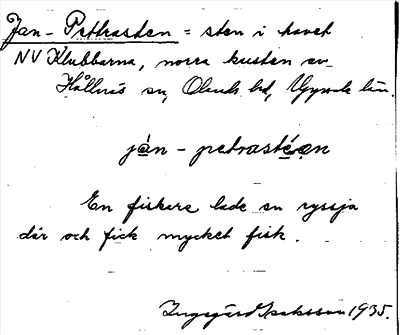 Jan-Pettrasten = sten i havet
NV Klubbarna, norra kusten av
Hållnäs sn, Olands hd, Uppsala län.
ján - petrastéen
En fiskare lade en ryssja
där och fick mycket fisk.
Ingegärd Isaksson 1935.